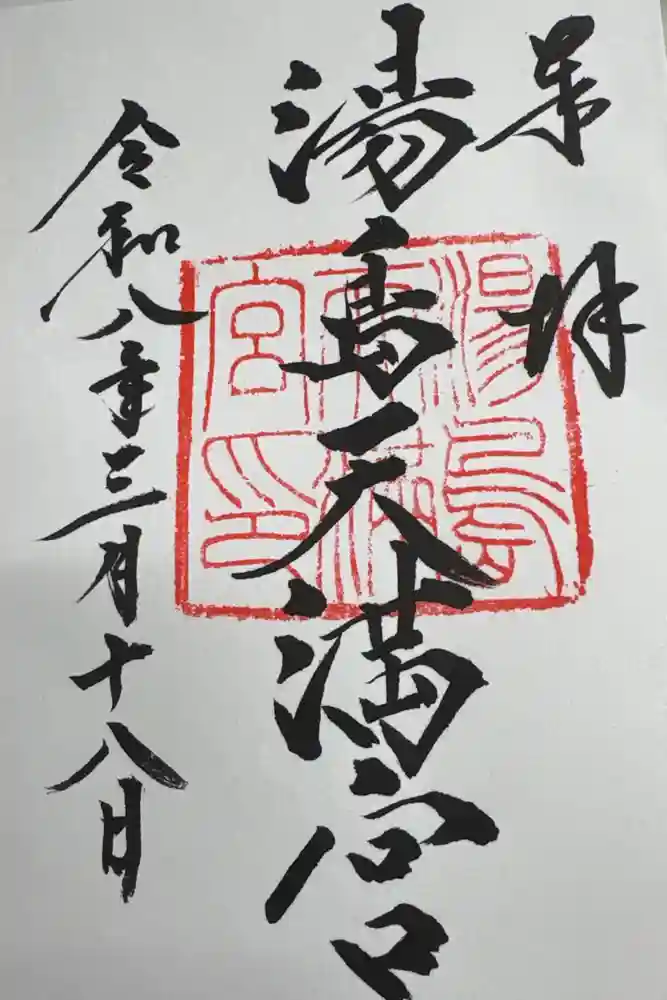 奉拝
湯島天満宮
湯島天満宮印
令和八年三月十八日